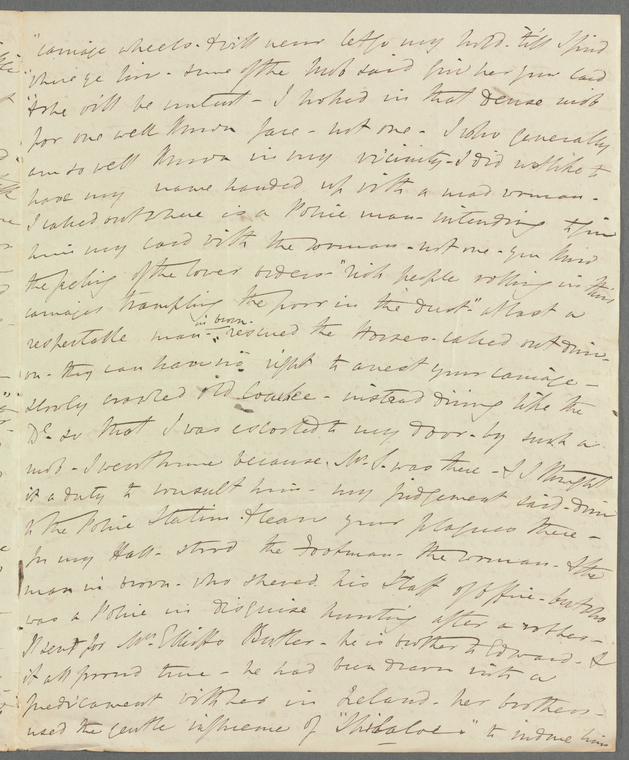 "carriage wheels. & will never let go my hold. till I find
"where ye live - some of the Mob said give her your card
"& she will be content - I looked in that dense mob
for one well known face - not one - I who generally
am so well known in my vicinity - I did not like to
have my name handed up with a mad woman -
I called out where is a Police man - intending to give
him my card with the woman - not one - you know
the feeling of the lower orders - "rich people rolling in their
carriages trampling the poor in the dust." at last a
respectable man - in brown - rescued the Horses - called out drive
on - they can have no right to arrest your carriage -
slowly crawled old - instead driving like the
Dl. so that I was escorted to my door - by such a
mob - I went home because Mr. S. was there - & I thought
it a duty to consult him - my judgement said - drive
to the Police Station & leave your plagues there -
In my Hall - stood the Footman - the woman - & the
man in brown - who shewed his Staff of office - but who
was a Police in disguise hunting after a robber -
I sent for Mrs Butler - he is brother to Edward - &
it all proved true - he had been drawn into a
predicament in Ireland - her brothers -
used the gentle influence of " " to induce him